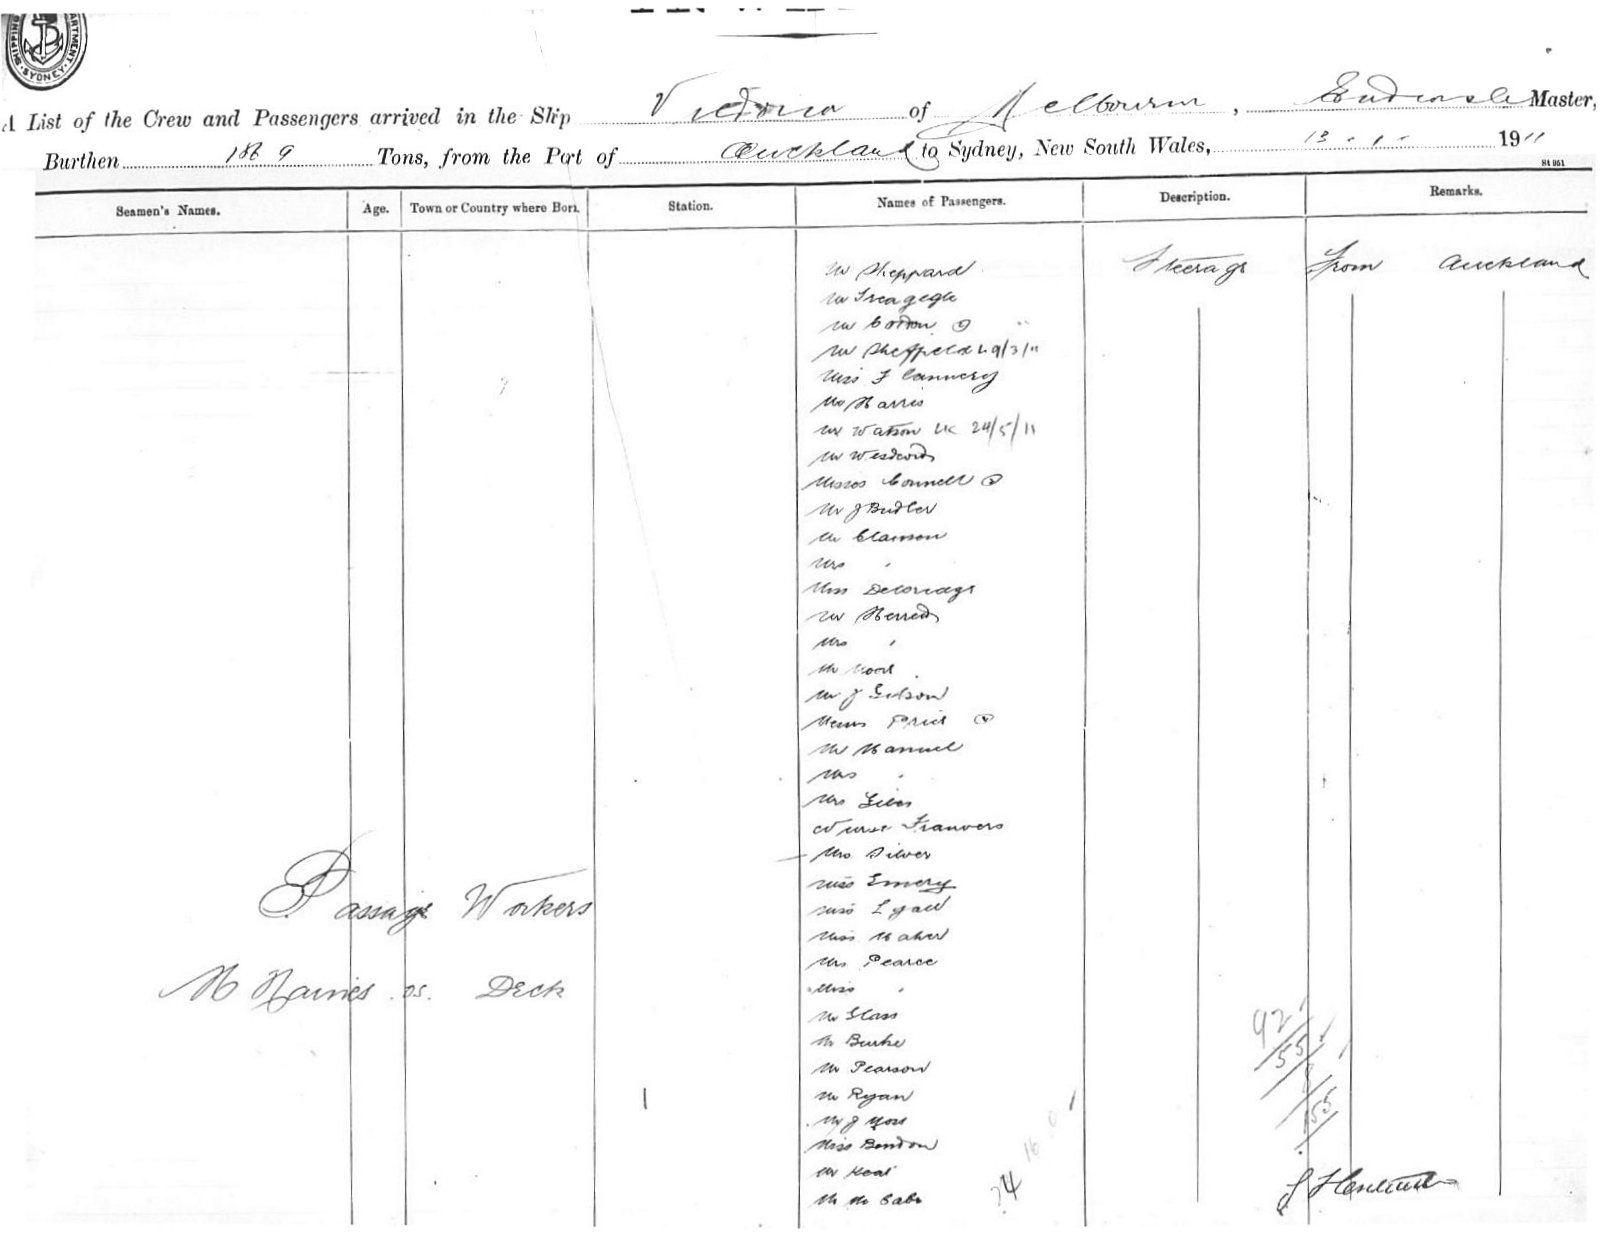 SHIPPING DEPARTMENT. SYDNEY.
A List of the Crew and Passengers arrived in the Ship Victoria of Melbourne, Master,
Burthen Tons, from the Port of Auckland to Sydney, New South Wales, 13 - 1 - 1911
St 951
Seamen's Names. Age. Town or Country where Born. Station. Names of Passengers. Description. Remarks.
Mr Sheppard Steerage From Auckland
Mr Treagegle
Mr Cotton "
Mr Sheffield 9/3/11
Miss F Cannery
Mr Harris
Mr Watson 24/5/11
Mr Westwood
Misses Connell
Mr J Butler
Mr Clamson
Mrs "
Miss
Mr Herred
Mrs "
Mr
Mr J Gibson
Price
Mr Manuel
Mrs "
Mrs Giles
Nurse
Mrs Silver
Miss Emery
Miss Lyall
Miss Maher
Mrs Pearce
Miss "
Mr Glass
Mr Burke
Mr Pearson
Mr Ryan
Mr J
Miss Bendon
Mr Keal
Mr Mc Cabe
Passage Workers
Haines os. Deck
92
55
155